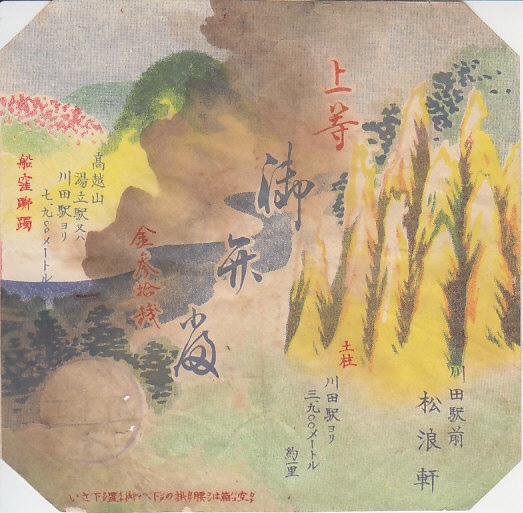 上等
御弁當
金参拾銭
川田駅前
松浪軒
土柱
川田駅ヨリ
三、九〇〇メートル
約一里
高越山
湯立駅又ハ
川田駅ヨリ
七、九〇〇メートル
船窪躑躅
空箱は腰掛の下へ御置き下さい